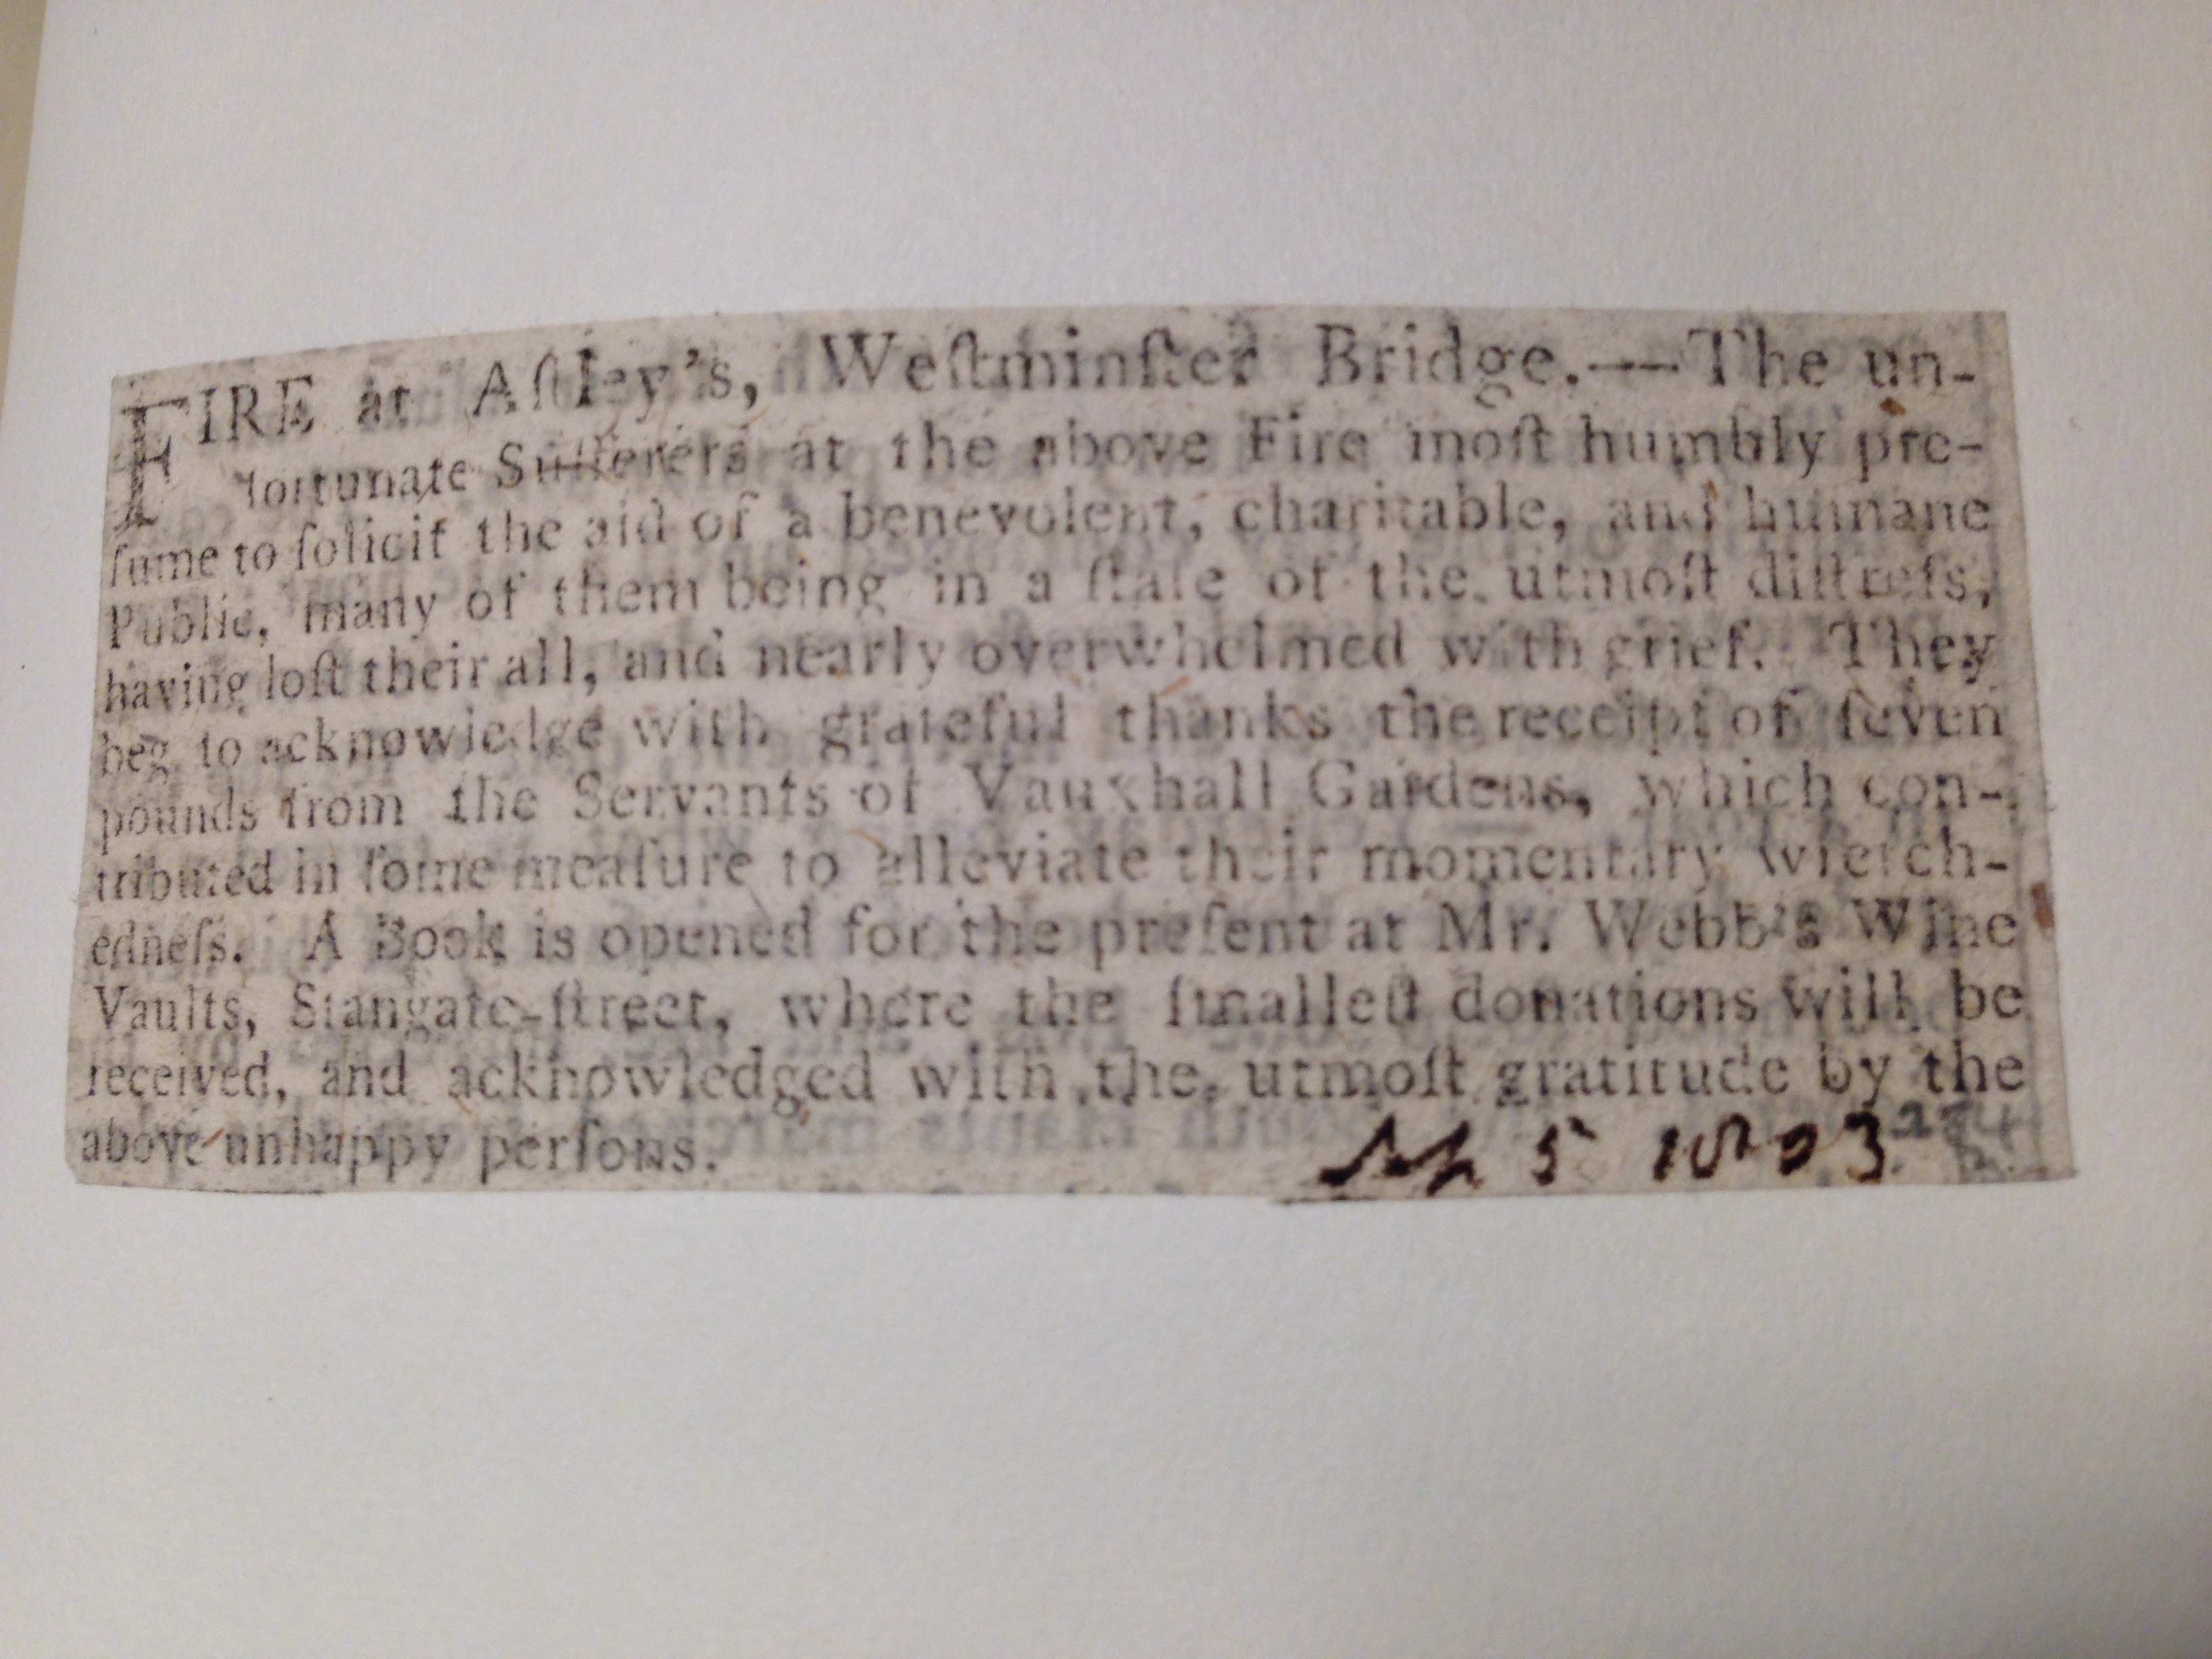 FIRE at Aſtley's, Weſtminſter Bridge.—The un-
fortunate Sufferers at the above Fire moſt humbly pre-
ſume to ſolicit the aid of a benevolent, charitable, and humane
Public, many of them being in a ſtate of the utmoſt diſtreſs,
having loſt their all, and nearly overwhelmed with grief. They
beg to acknowledge with grateful thanks the receipt of ſeven
pounds from the Servants of Vauxhall Gardens, which con-
tributed in ſome meaſure to alleviate their momentary wretch-
edneſs. A Book is opened for the preſent at Mr. Webb's Wine
Vaults, Stangate-ſtreet, where the ſmalleſt donations will be
received, and acknowledged with the utmoſt gratitude by the
above unhappy perſons.
5 1803